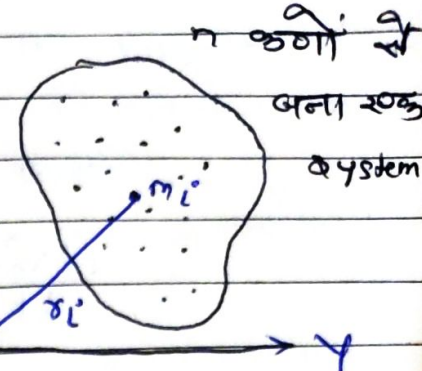 n कणों से
बना एक
system
mi
ri
Y